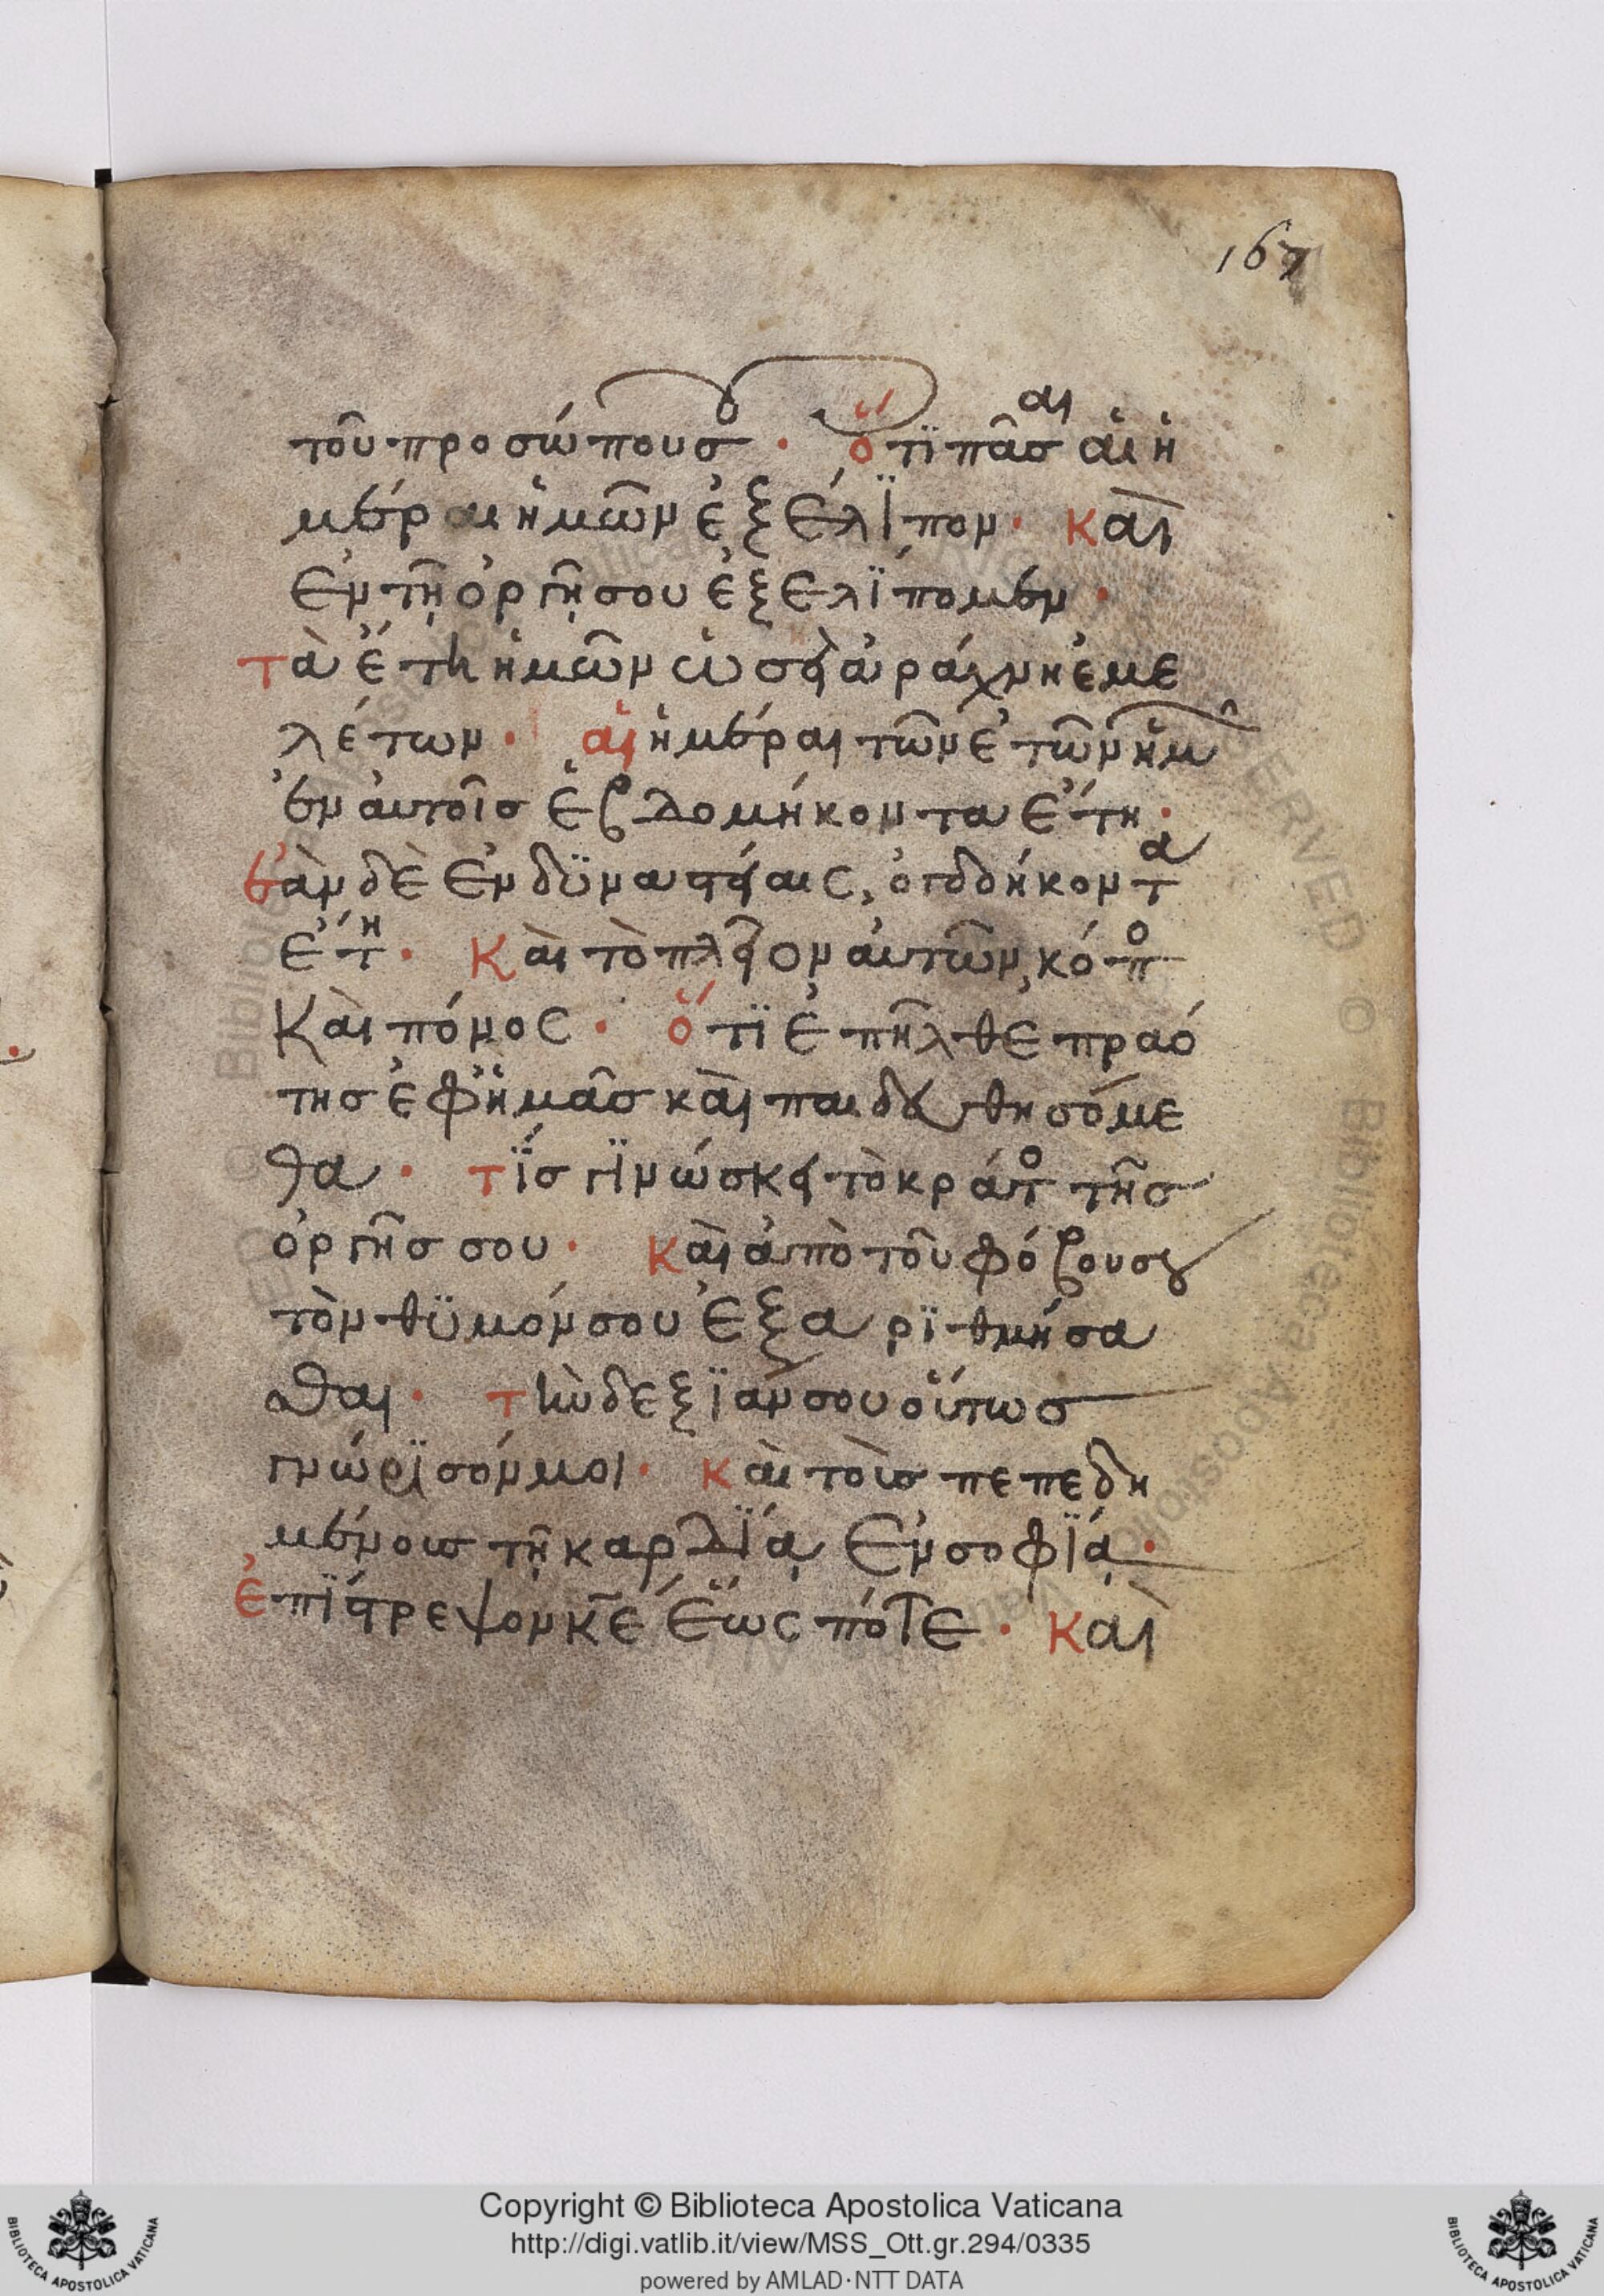 167
τοῦ προσώπου σ · ὅτϊ πᾶσαι αἱ ἡ
μέραι ἡμῶν ἐξέλϊπον · καὶ
ἐν τῇ ὀργῇ σου ἐξελΐπομεν ·
τὰ ἔτη ἡμῶν ὡσεὶ ἀράχνη ἐμε
λέτων · αἱ ἡμέραι τῶν ἐτῶν ἡμῶ
ἐν αὐτοῖσ ἑβδομήκοντα ἔτη ·
ἐὰν δὲ ἐν δϋναστείαις, ὀγδδήκοντα
ἔτη · Καὶ τὸ πλεῖον αὐτῶν, κόπο
Καὶ πόνος · ὅτϊ ἐπῆλθε πραό
τησ ἐφ ἡμᾶσ καὶ παιδευθησόμε
θα · τΐσ γϊνώσκει τὸ κράτο τῆσ
ὀργῆσ σου · Καὶ ἀπὸ τοῦ φόβου σου
τὸν θϋμόν σου ἐξαρϊθμήσα
σθαι · τὴν δεξϊάν σου οὕτωσ
γνώρϊσόν μοι · καὶ τοὺσ πεπεδη
μένουσ τῇ καρδΐᾳ ἐν σοφΐᾳ ·
ἐπΐστρεψον κε ἕως πότε · Καὶ
Copyright © Biblioteca Apostolica Vaticana
http://digi.vatlib.it/view/MSS_Ott.gr.294/0335
powered by AMLAD·NTT DATA
BIBLIOTECA APOSTOLICA VATICANA
BIBLIOTECA APOSTOLICA VATICANA